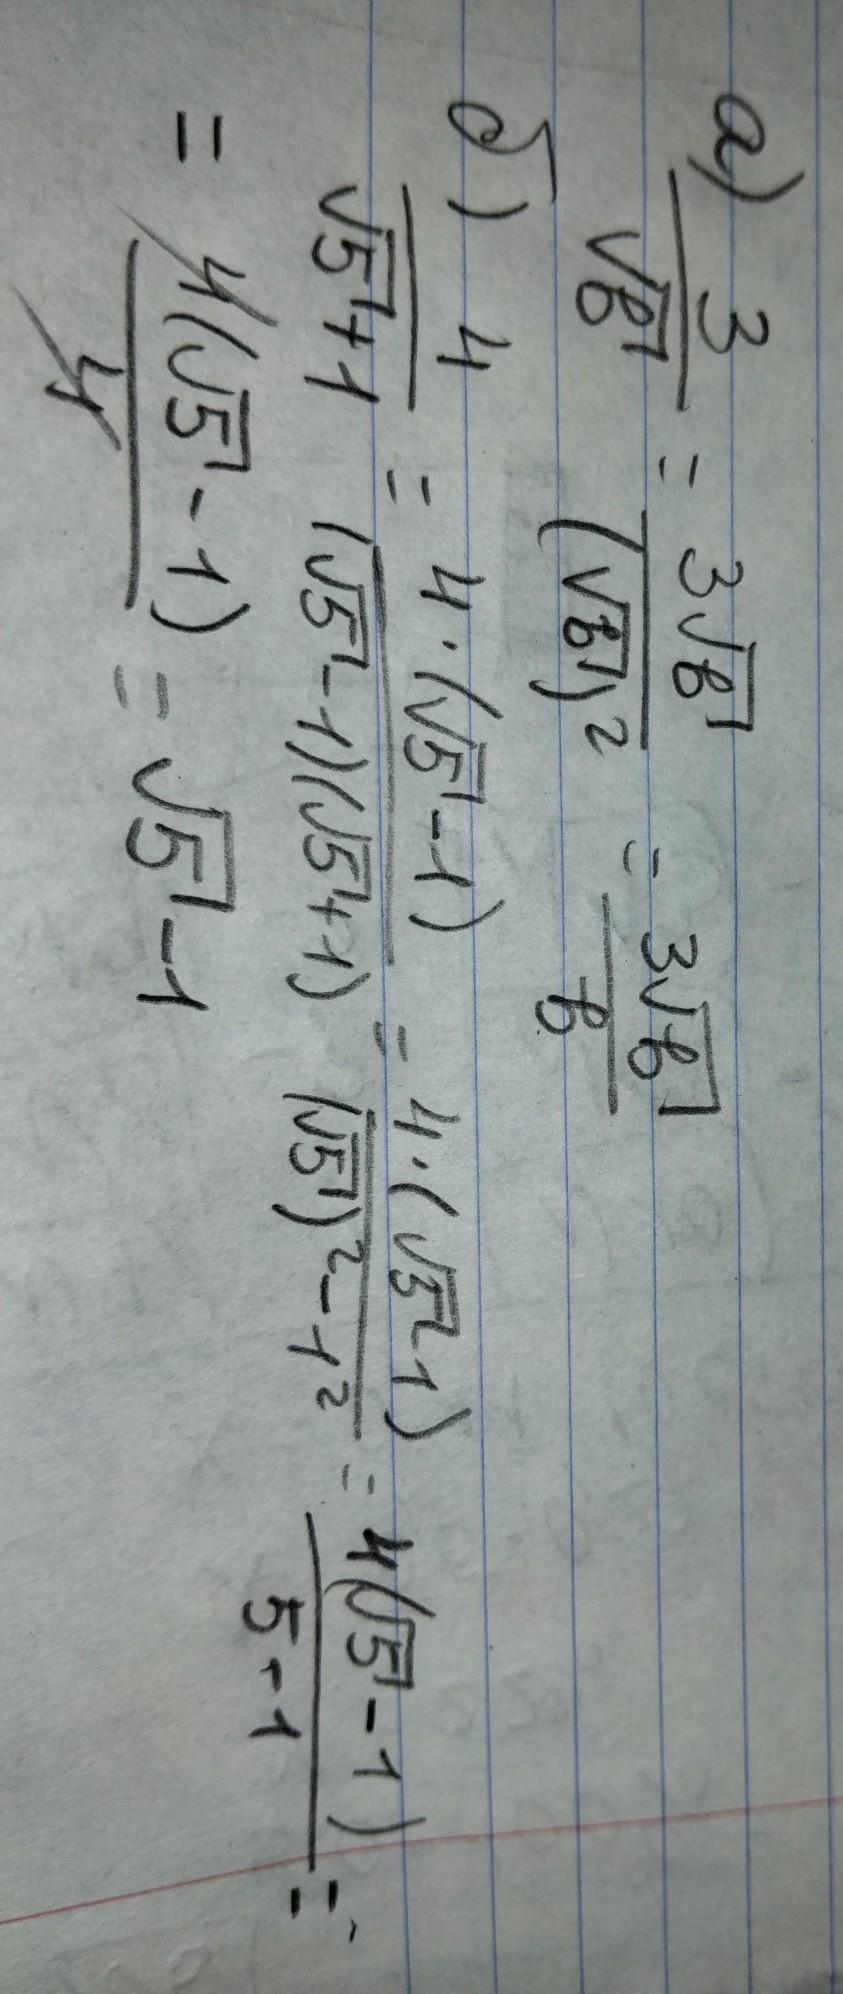 а) 3/√b = 3√b/(√b)² = 3√b/b
б) 4/(√5+1) = 4·(√5-1)/((√5-1)(√5+1)) = 4·(√5-1)/((√5)²-1²) = 4(√5-1)/(5-1) =
= 4(√5-1)/4 = √5-1